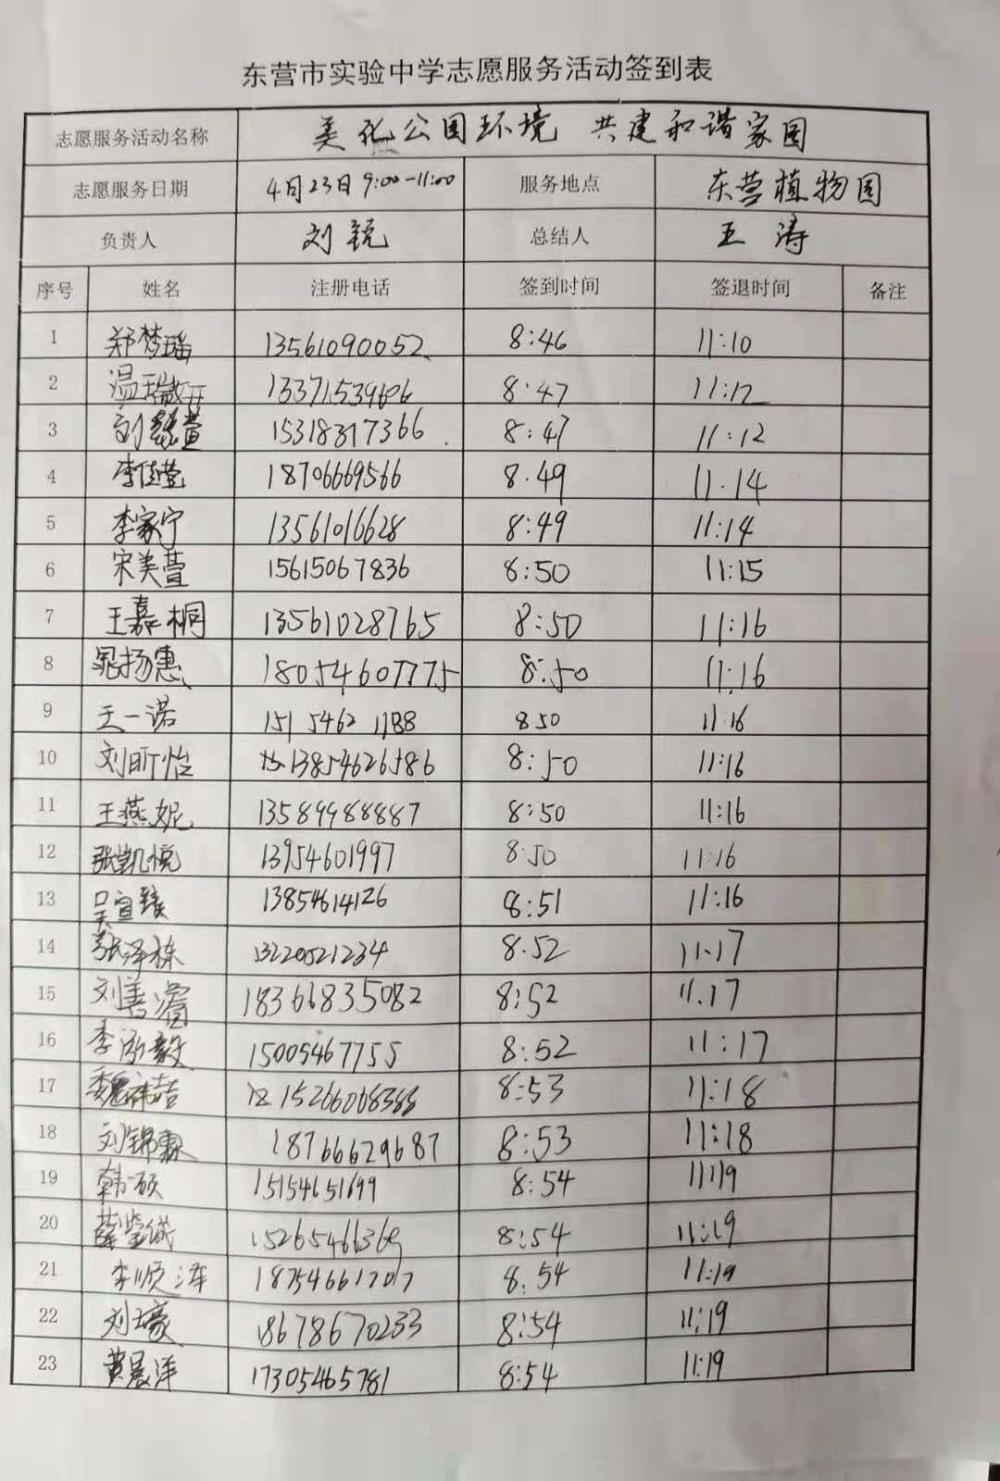 东营市实验中学志愿服务活动签到表
志愿服务活动名称 美化公园环境 共建和谐家园
志愿服务日期 4月23日 9:00-11:00 服务地点 东营植物园
负责人 刘锐 总结人 王涛
序号 姓名 注册电话 签到时间 签退时间 备注
1 郑梦瑶 13561090052 8:46 11:10
2 13371539606 8:47 11:12
3 15318317366 8:47 11:12
4 李佳莹 18706669566 8.49 11.14
5 李家宁 13561016628 8:49 11:14
6 宋美萱 15615067836 8:50 11:15
7 王嘉桐 13561028765 8:50 11:16
8 晁扬惠 18054607775 8:50 11:16
9 王一诺 151 5462 1188 8 50 11 16
10 刘昕怡 13854626586 8:50 11:16
11 王燕妮 13589988887 8:50 11:16
12 张凯悦 13954601997 8:50 11:16
13 吴宣臻 13854614126 8:51 11:16
14 张泽栋 13220521234 8.52 11.17
15 18366835082 8:52 11.17
16 李泓毅 15005467755 8:52 11:17
17 15266068388 8:53 11:18
18 刘锦霖 18766629687 8:53 11:18
19 韩硕 15154651699 8:54 11:19
20 15265466369 8:54 11:19
21 李顺泽 18754661707 8.54 11:19
22 18678670233 8:54 11:19
23 黄晟洋 17305465781 8:54 11:19